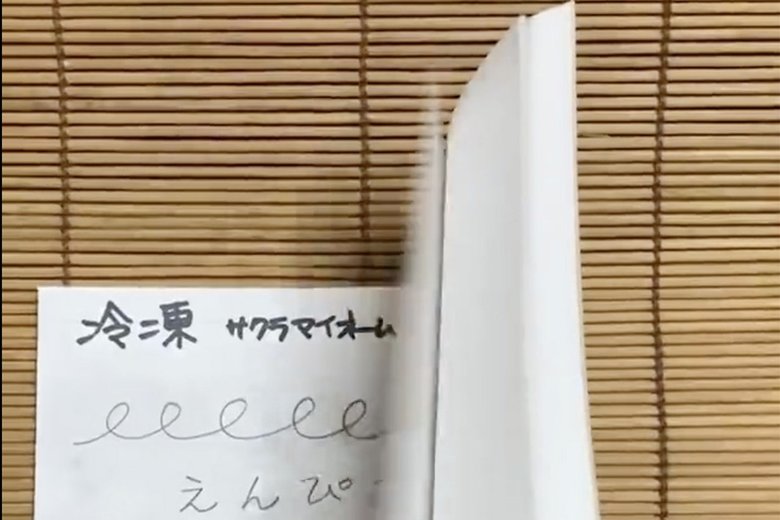 冷凍 サクラマイオーム
えんぴ